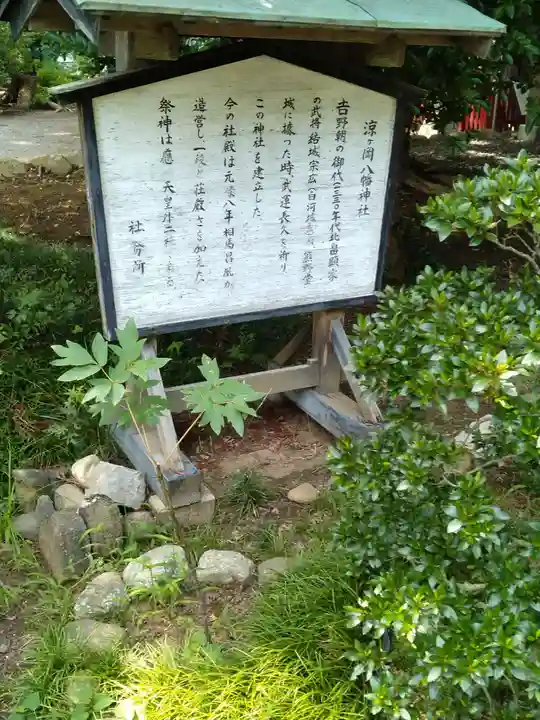 涼ヶ岡八幡神社
吉野朝の御代(一三三〇年代)北畠顕家
の武将結城宗広(白河城主)が熊野堂
城に據った時、武運長久を祈り
この神社を建立した
今の社殿は元禄八年相馬昌胤が
造営し一段と荘厳さを加えた
祭神は應 天皇外二
社務所